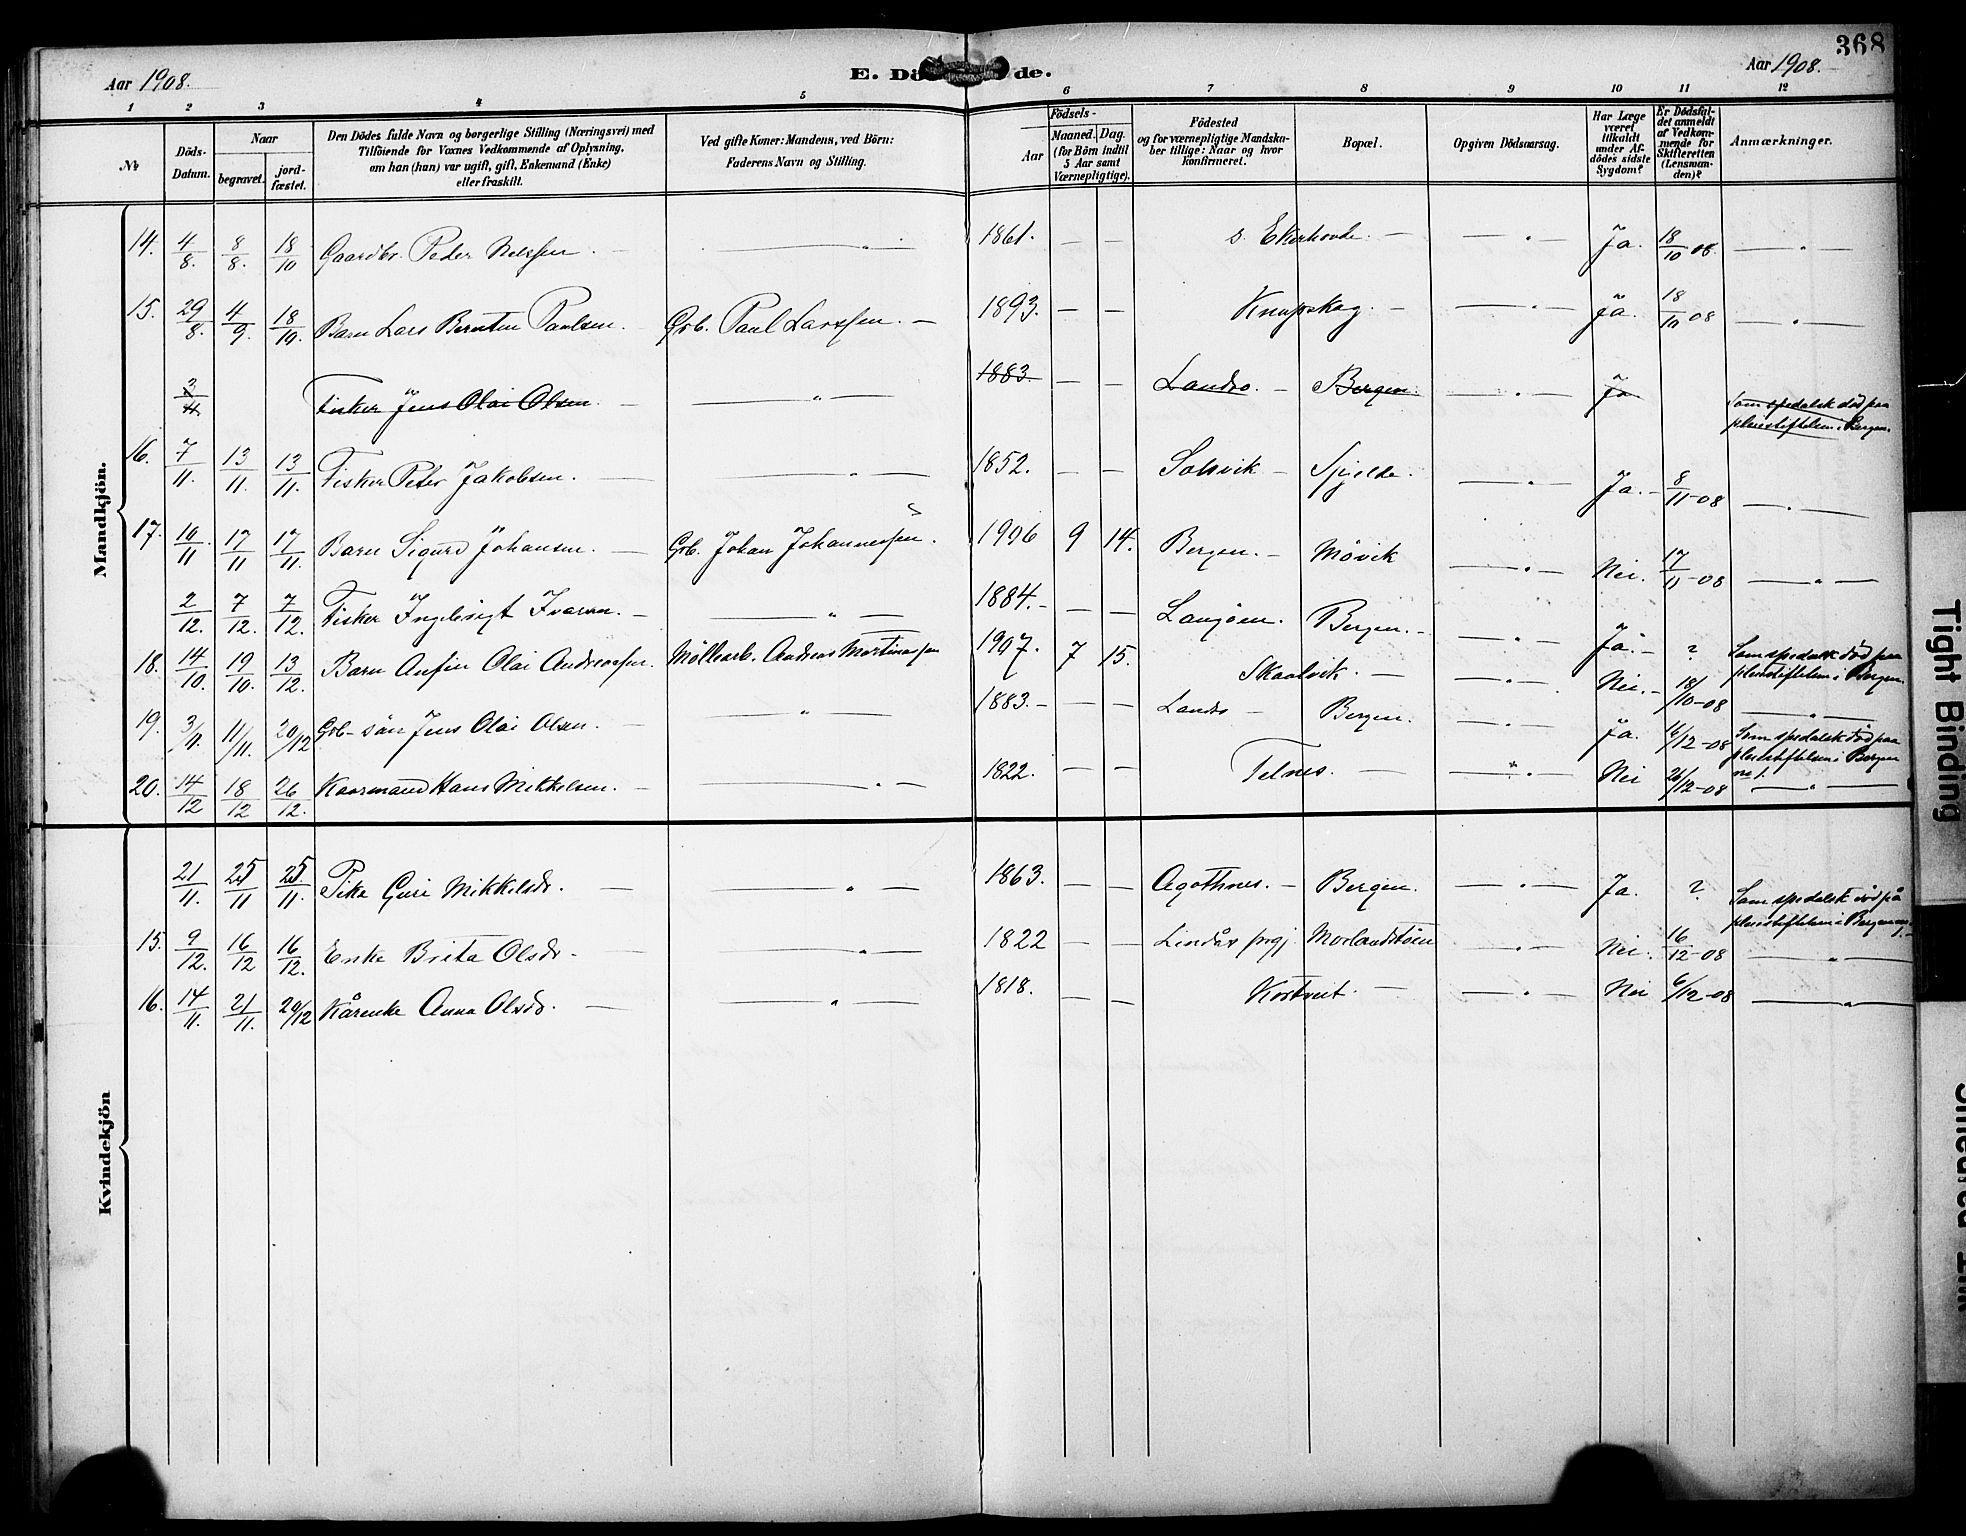 368
Aar 1908.
E. Dö de.
Aar 1908.
1 2 3 4 5 6 7 8 9 10 11 12
№
Döds-Datum.
Naar
begravet.
jord-fæstet.
Den Dödes fulde Navn og borgerlige Stilling (Næringsvei) med
Tilföiende for Voxnes Vedkommende af Oplysning,
om han (hun) var ugift, gift, Enkemand (Enke)
eller fraskilt.
Ved gifte Koner: Mandens, ved Börn:
Faderens Navn og Stilling.
Födsels-
Aar
Maaned. Dag.
(for Börn indtil
5 Aar samt
Værnepligtige).
Födested
og for værnepligtige Mandska-
ber tillige: Naar og hvor
konfirmeret.
Bopæl.
Opgiven Dödsaarsag.
Har Læge
været
tilkaldt
under Af-
dödes sidste
Sygdom?
Er Dödsfal-
det anmeldt
af Vedkom-
mende for
Skifteretten
(Lensman-
den)?
Anmærkninger.
Mandkjön.
14. 4/8. 8/8. 18/10 Gaardbr. Peder Nelssen. — — " — 1861. — — s. Ekerhovde. — — " — Ja. 18/10 08. — " —
15. 29/8. 4/9. 18/10. Barn Lars Berntin Paulsen. Grb. Paul Larssen. — 1893. — — Knapskog. — — " — Ja. 18/10 08 — " —
3/11 Fisker Jens Olai Olsen. — — " — 1883. — — Landro. — Bergen. — " — Ja Som spedalsk død paa
pleiestiftelsen i Bergen.
16. 7/11. 13/11. 13/11. Fisker Peter Jakobsen. — — " — 1852. — — Solsvik — Spjelde. — " — Ja. — 8/11-08 — " —
17. 16/11 17/11 17/11. Barn Sigurd Johansen. — Grb. Johan Johannessen. 1906 9 14. Bergen. — Móvik — " — Nei. 17/11-08 — " —
2/12. 7/12. 7/12. Fisker Ingebrigt Ivarsen. — — " — 1884. — — — Langöen. Bergen. — — " — Ja. — ? Som spedalsk død paa
pleiestiftelsen i Bergen.
18. 14/10. 19/10. 13/12. Barn Anfin Olai Andreassen. Møllearb. Andreas Martinussen 1907. 7 15. Skaalvik. — — " — Nei. — 18/10-08 — " —
19. 3/11. 11/11. 20/12 Grb-sön Jens Olai Olsen. — — " — 1883. — — — Landro — Bergen. — " — Ja. 16/12-08 Som spedalsk død paa
pleiestiftelsen i Bergen
no 1.
20. 14/12 18/12 26/12. Kaarmand Hans Mikkelsen. — — " — 1822. — — Telnes. — — " — Nei 26/12-08 — " —
Kvindekjön
21/11. 25/11 25/11. Pike Guri Mikkelsdr. — — " — 1863. — — Agothnes. — Bergen. — " — Ja. ? Som spedalsk död på
pleiestiftelsen i Bergen no 1. —
15. 9/12. 16/12 16/12. Enke Brita Olsdr. — " — 1822 — — Lindås prgj. Morlandstöen — " — Nei. 16/12-08 — " —
16. 14/11. 21/11. 20/12 Kårenke Anna Olsdr. — — " — 1818. — — Kortveit. — — " — Nei 6/12-08 — " —
Tight Binding